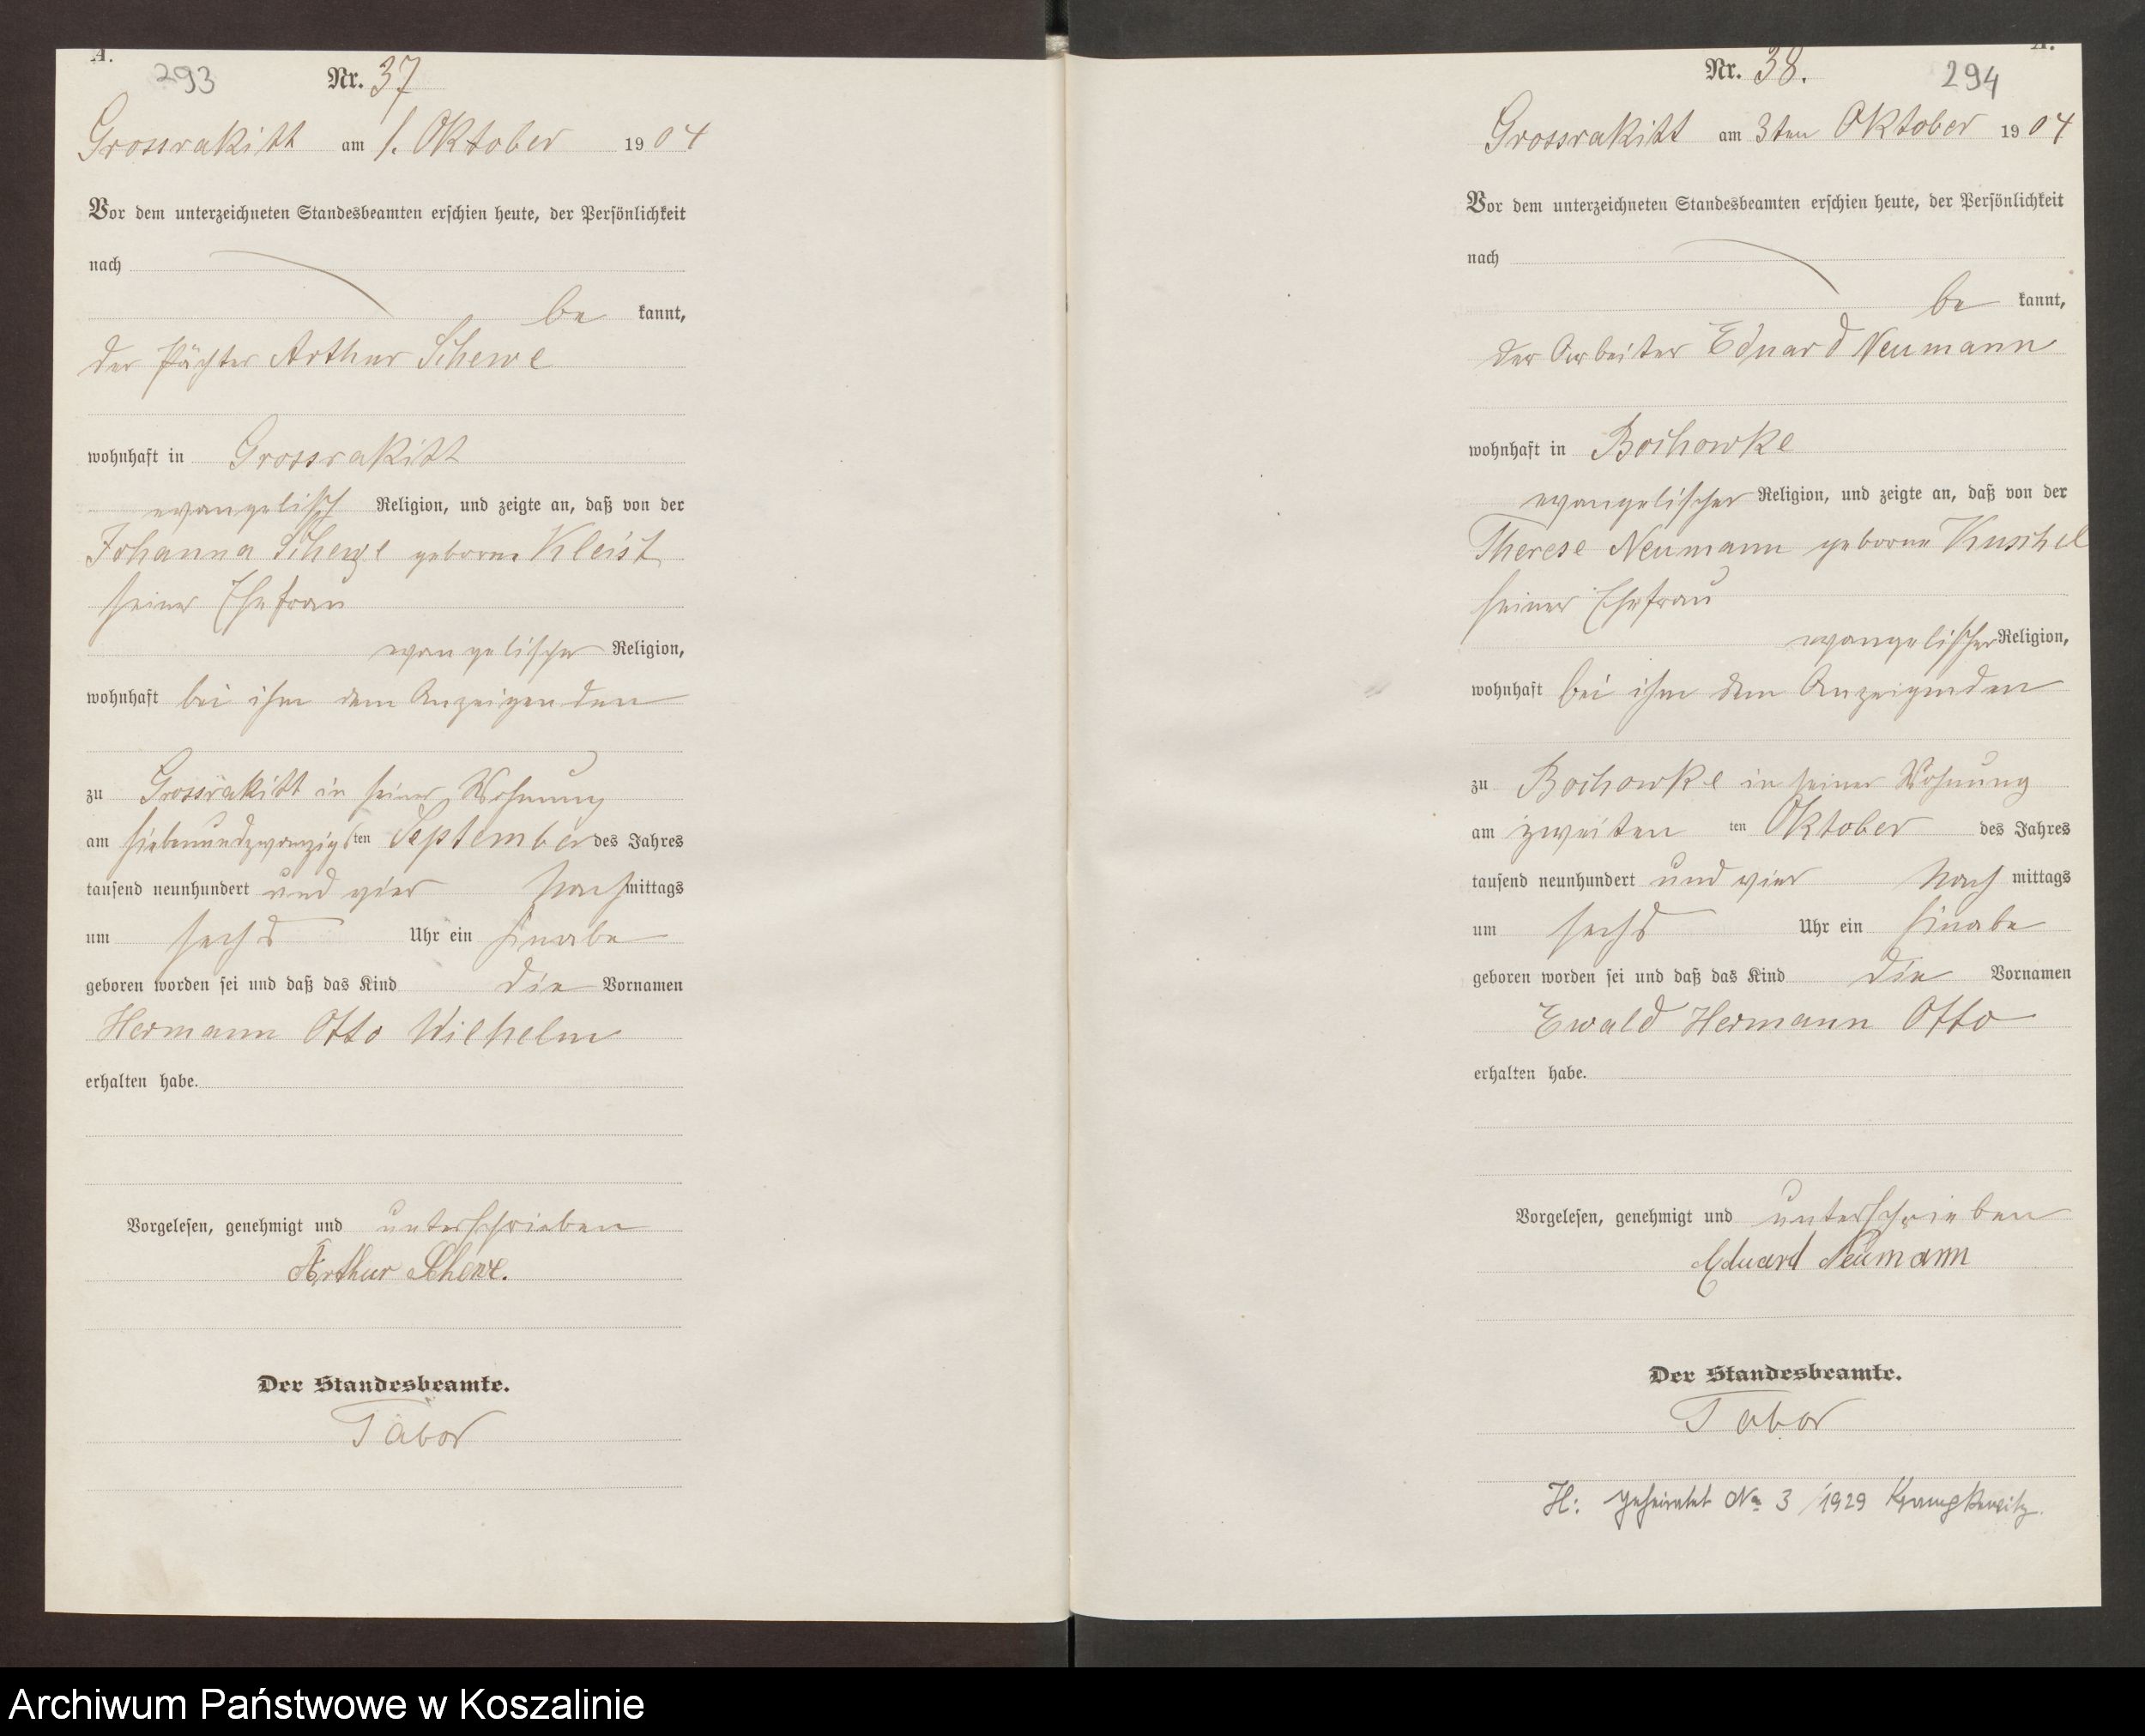 A.
293
Nr. 37
Grossrakitt am 1. Oktober 1904
Vor dem unterzeichneten Standesbeamten erschien heute, der Persönlichkeit
nach
be kannt,
der Pächter Arthur Schewe
wohnhaft in Grossrakitt
evangelisch Religion, und zeigte an, daß von der
Johanna Schewe geborne Kleist
seiner Ehefrau
evangelischer Religion,
wohnhaft bei ihm dem Anzeigenden
zu Grossrakitt in seiner Wohnung
am siebenundzwanzigsten September des Jahres
tausend neunhundert und vier Nachmittags
um sechs Uhr ein Knabe
geboren worden sei und daß das Kind die Vornamen
Hermann Otto Wilhelm
erhalten habe.
Vorgelesen, genehmigt und unterschrieben
Arthur Schewe.
Der Standesbeamte.
Tabor
A.
Nr. 38.
294
Grossrakitt am 3ten Oktober 1904
Vor dem unterzeichneten Standesbeamten erschien heute, der Persönlichkeit
nach
be kannt,
der Arbeiter Eduard Neumann
wohnhaft in Bochowke
evangelischer Religion, und zeigte an, daß von der
Therese Neumann geborne Kuschel
seiner Ehefrau
evangelischer Religion,
wohnhaft bei ihm dem Anzeigenden
zu Bochowke in seiner Wohnung
am zweiten ten Oktober des Jahres
tausend neunhundert und vier Nach mittags
um sechs Uhr ein Knabe
geboren worden sei und daß das Kind die Vornamen
Ewald Hermann Otto
erhalten habe.
Vorgelesen, genehmigt und unterschrieben
Eduard Neumann
Der Standesbeamte.
Tabor
H: geheiratet No 3/1929 Krampkewitz.
Archiwum Państwowe w Koszalinie